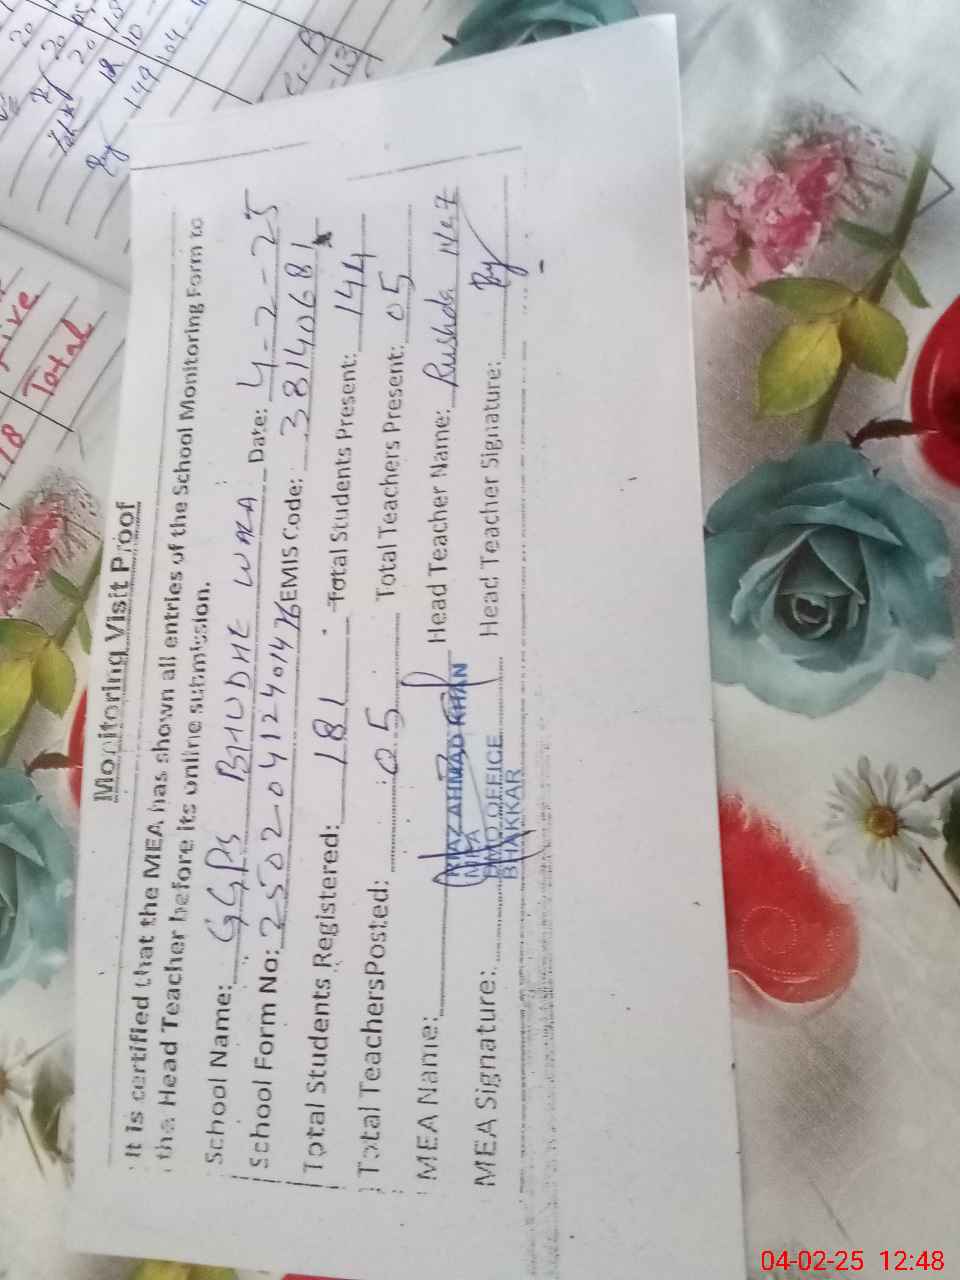 Monitoring Visit Proof
It is certified that the MEA has shown all entries of the School Monitoring Form to
the Head Teacher before its online submission.
School Name: GGPS BHUDHE WALA Date: 4-2-25
School Form No: 2502-0412401476 EMIS Code: 38140681
Total Students Registered: 181 Total Students Present: 144
Total Teachers Posted: 05 Total Teachers Present: 05
MEA Name: RIAZ AHMAD KHAN Head Teacher Name: Rushda
MEA
MEA Signature: DMO OFFICE Head Teacher Signature:
BHAKKAR
Total
18
149
04-02-25 12:48